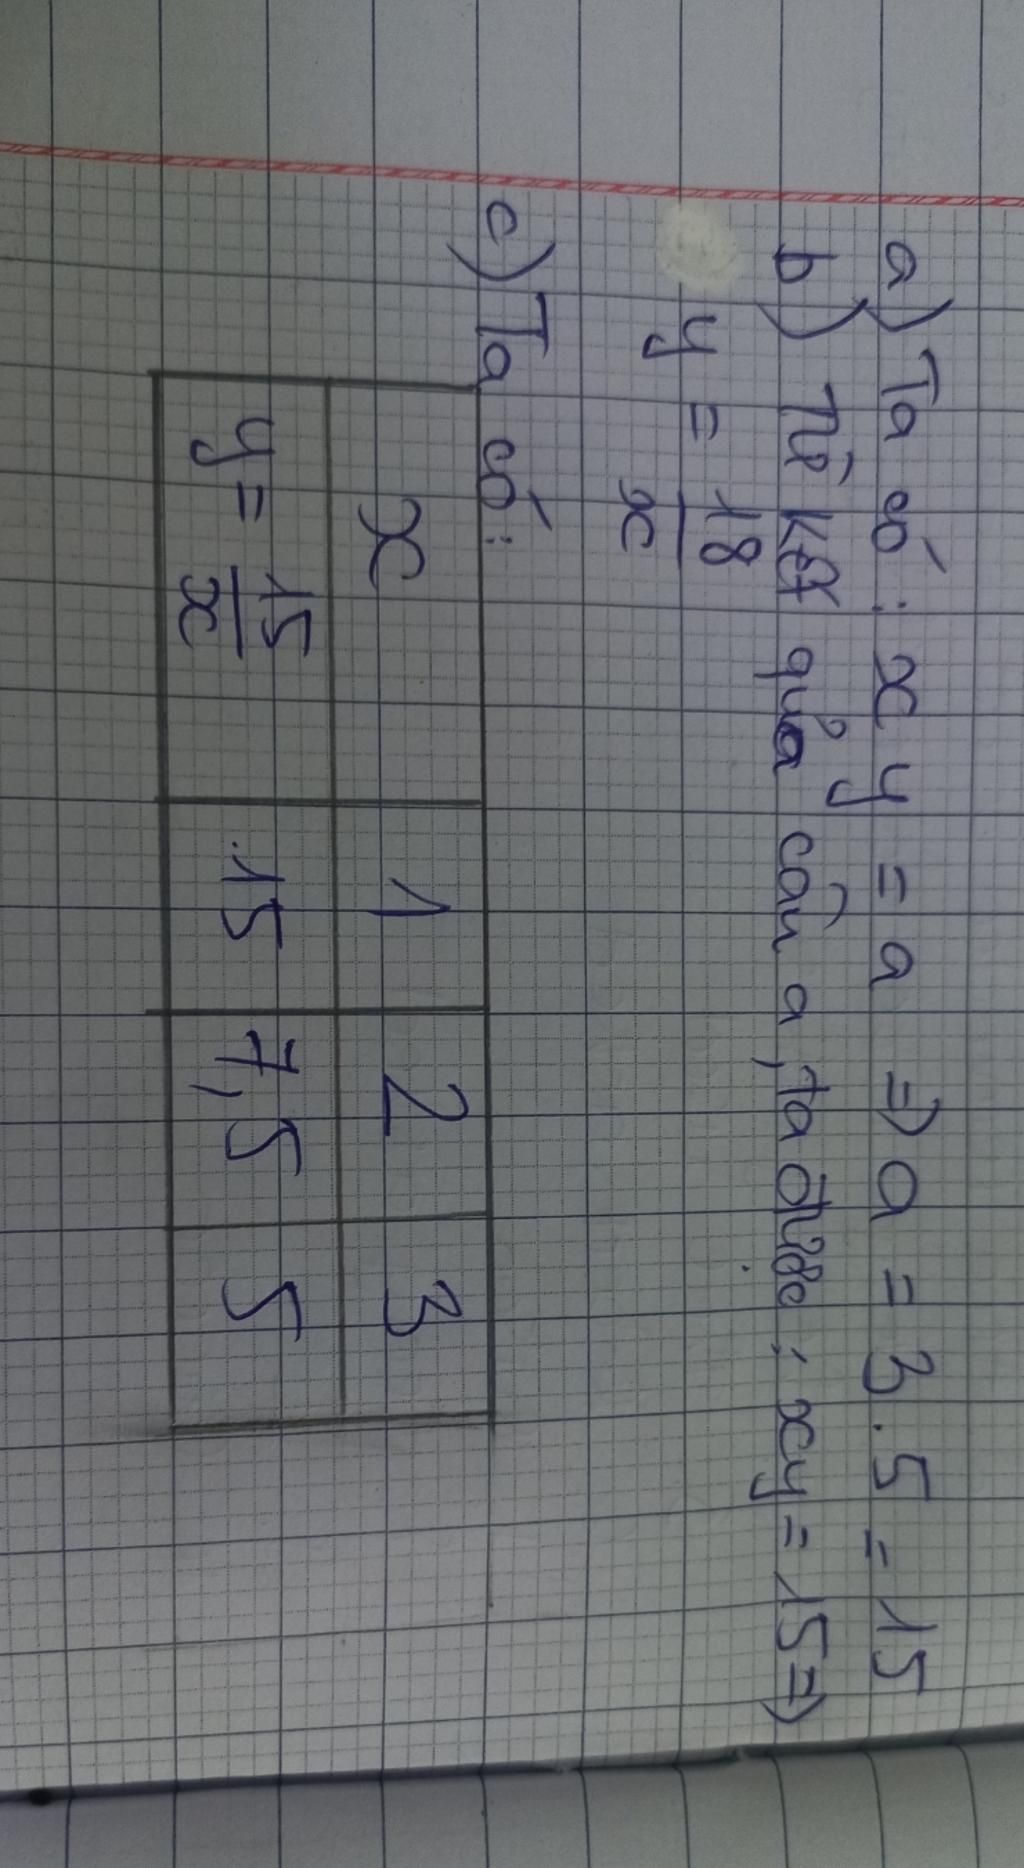 a) Ta có : xy = a => a = 3.5 = 15
b) Từ kết quả câu a, ta được : xy = 15 =>
y = 18/x
c) Ta có :
x 1 2 3
y = 15/x 15 7,5 5